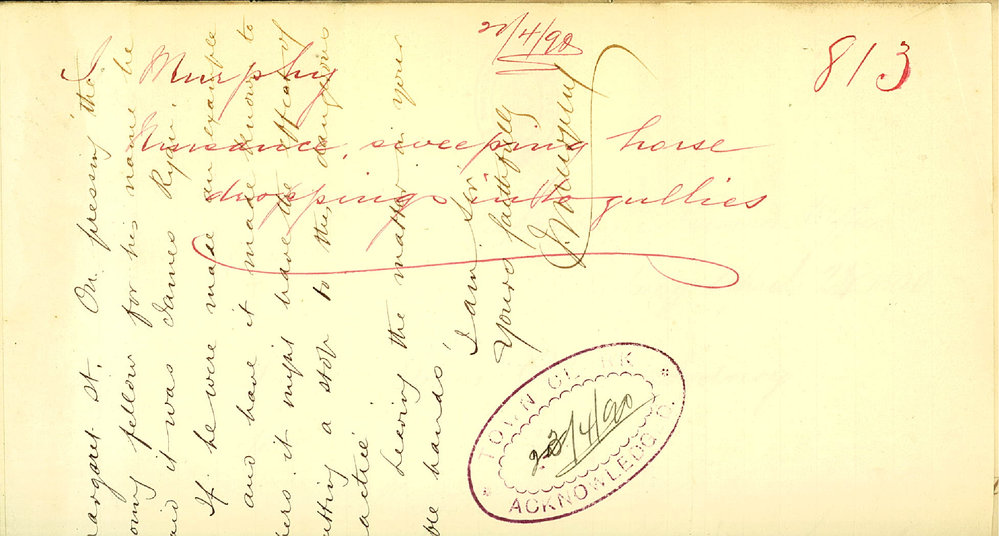 22/4/90
813
J. Murphy
Nuisance, sweeping horse
droppings into gullies
Margaret St. On pressing the
young fellow for his name he
said it was 'James Ryan,'
If he were made an example
and have it made known to
others it might have the effect of
putting a stop to this dangerous
practice
Leaving the matter in your
hands'
I am, Sir
Yours faithfully
J. Murphy
TOWN CLERK
23/4/90
ACKNOWLEDGED